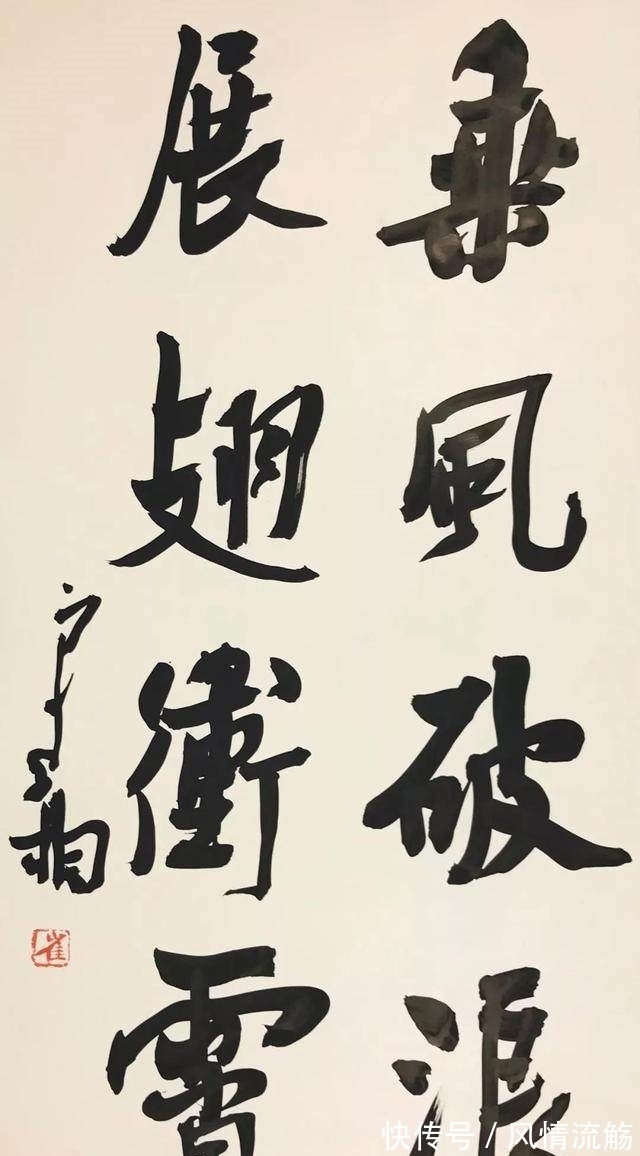 乘風破浪
展翅衝霄
崔
快传号 / 风情流觞